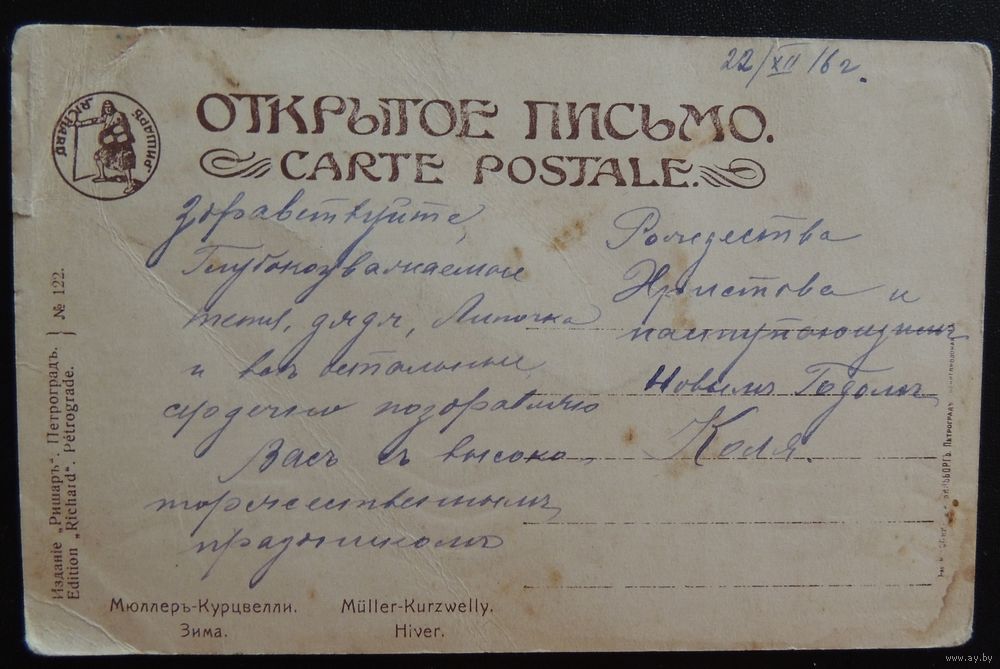 22/XII 16 г.
ОТКРЫТОЕ ПИСЬМО.
CARTE POSTALE.
РИШАРЪ
RICHARD
Здравствуйте,
Глубокоуважаемые
тетя, дядя, Липочка
и всѣ остальные,
сердечно поздравляю
Васъ съ высоко-
торжественнымъ
праздникомъ
Рождества
Христова и
наступающимъ
Новымъ Годомъ
Коля.
Изданіе „Ришаръ". Петроградъ.
Edition „Richard". Pétrograde.
№ 122.
Мюллеръ-Курцвелли.
Зима.
Müller-Kurzwelly.
Hiver.
ПЕТРОГРАДЪ
www.ay.by